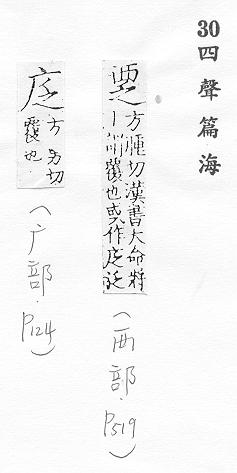 30四聲篇海
覂方腫切漢書大命將丨覆也或作
(西部.P519)
方勇切覆也
(广部.P124)